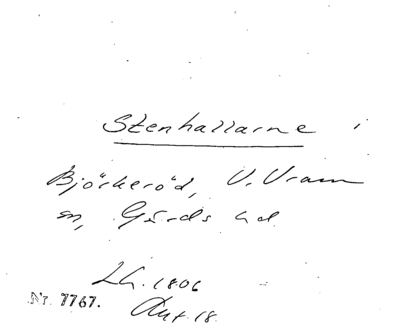 Stenhallarne i
Björkeröd, V. Vram
sn, Gärds hd
LA. 1806
Nr. 7767.
Akt. 18.